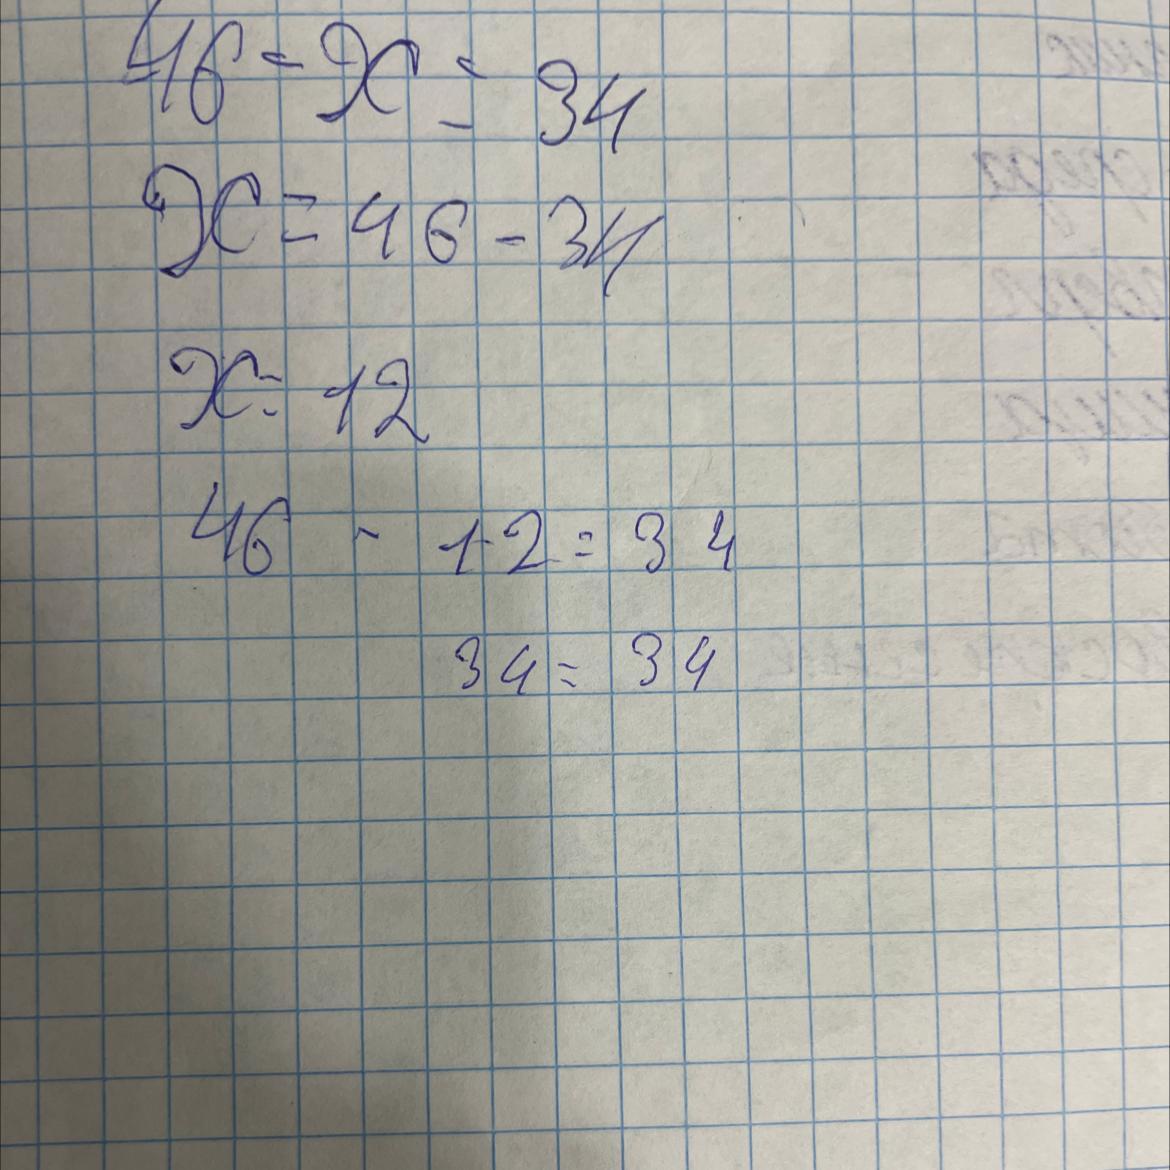 46 - x = 34
x = 46 - 34
x = 12
46 - 12 = 34
34 = 34